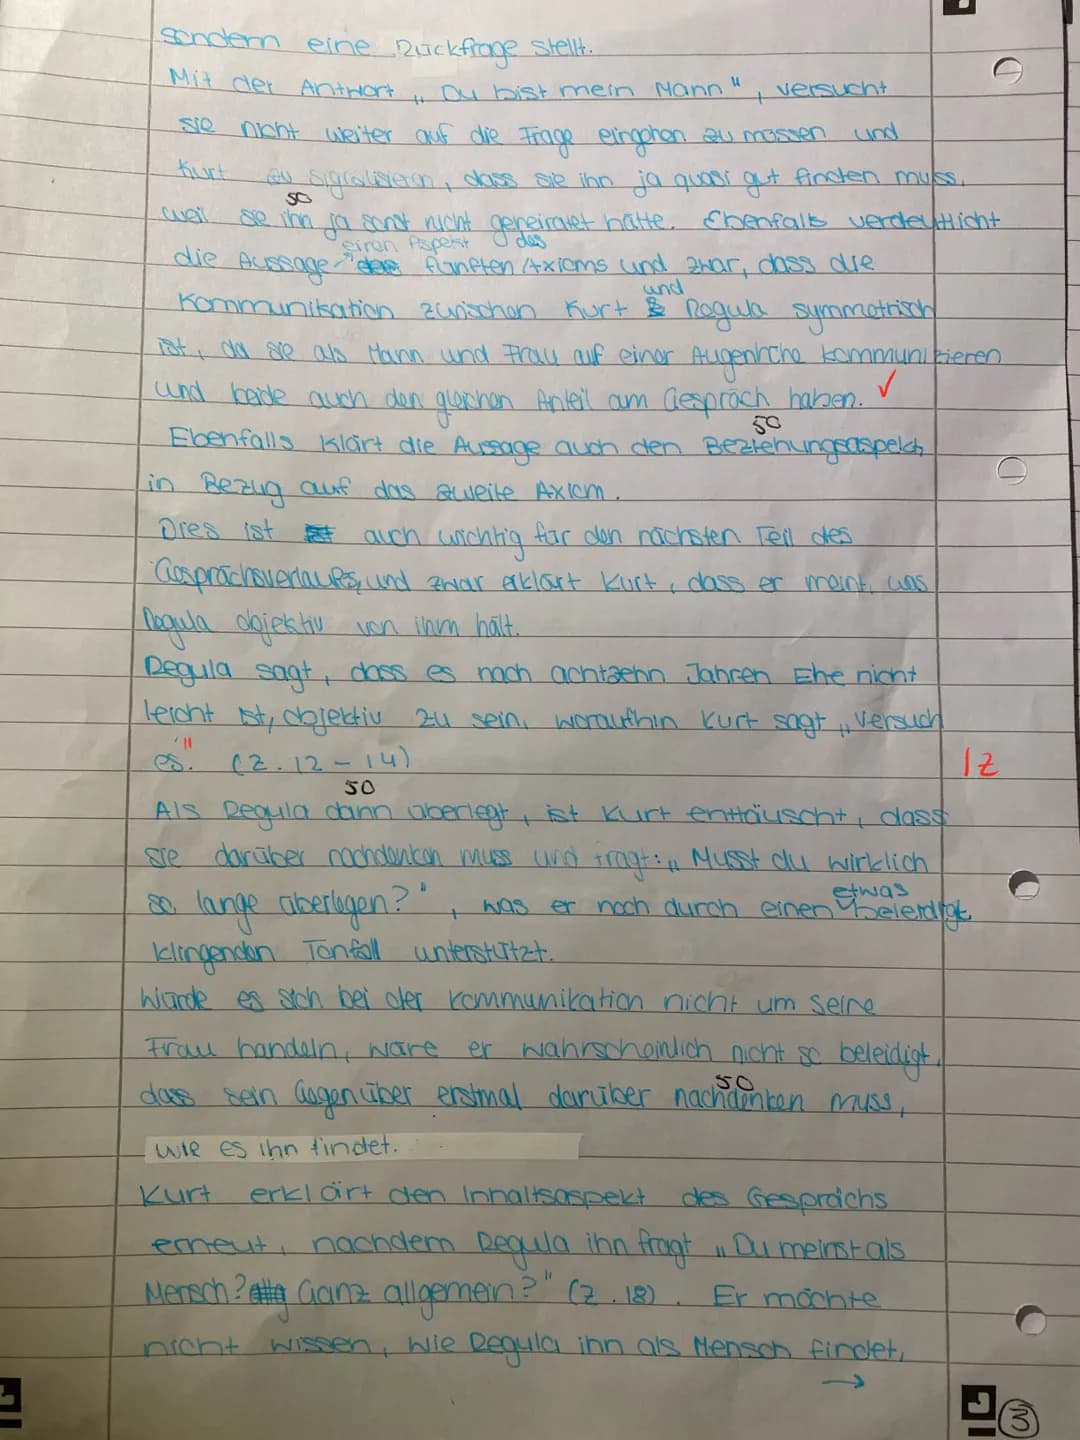 sondern eine Rückfrage stellt.
Mit der Antwort „Du bist mein Mann", versucht
sie nicht weiter auf die Frage eingehen zu müssen und
Kurt zu signalisieren, dass sie ihn ja quasi gut finden muss,
50
weil sie ihn ja sonst nicht geheiratet hätte. Ebenfalls verdeutlicht
einen Aspekt des
die Aussage fünften Axioms und zwar, dass die
und
Kommunikation zwischen Kurt Regula symmetrisch
ist, da sie als Mann und Frau auf einer Augenhöhe kommunizieren
und beide auch den gleichen Anteil am Gespräch haben. ✓
50
Ebenfalls klärt die Aussage auch den Beziehungsaspekt,
in Bezug auf das zweite Axiom.
Dies ist auch wichtig für den nächsten Teil des
Gesprächsverlaufes, und zwar erklärt Kurt, dass er meint, was
Regula objektiv von ihm hält.
Regula sagt, dass es nach achtzehn Jahren Ehe nicht
leicht ist, objektiv zu sein, woraufhin Kurt sagt „Versuch
es." (Z. 12 - 14) | Z
50
Als Regula dann überlegt, ist Kurt enttäuscht, dass
sie darüber nachdenken muss und fragt: „Musst du wirklich
etwas
so lange überlegen?", was er noch durch einen beleidigt
klingenden Tonfall unterstützt.
Würde es sich bei der Kommunikation nicht um seine
Frau handeln, wäre er wahrscheinlich nicht so beleidigt,
50
dass sein Gegenüber erstmal darüber nachdenken muss,
wie es ihn findet.
Kurt erklärt den Inhaltsaspekt des Gesprächs
erneut, nachdem Regula ihn fragt „Du meinst als
Mensch? Ganz allgemein?" (Z. 18). Er möchte
nicht wissen, wie Regula ihn als Mensch findet,
→
3